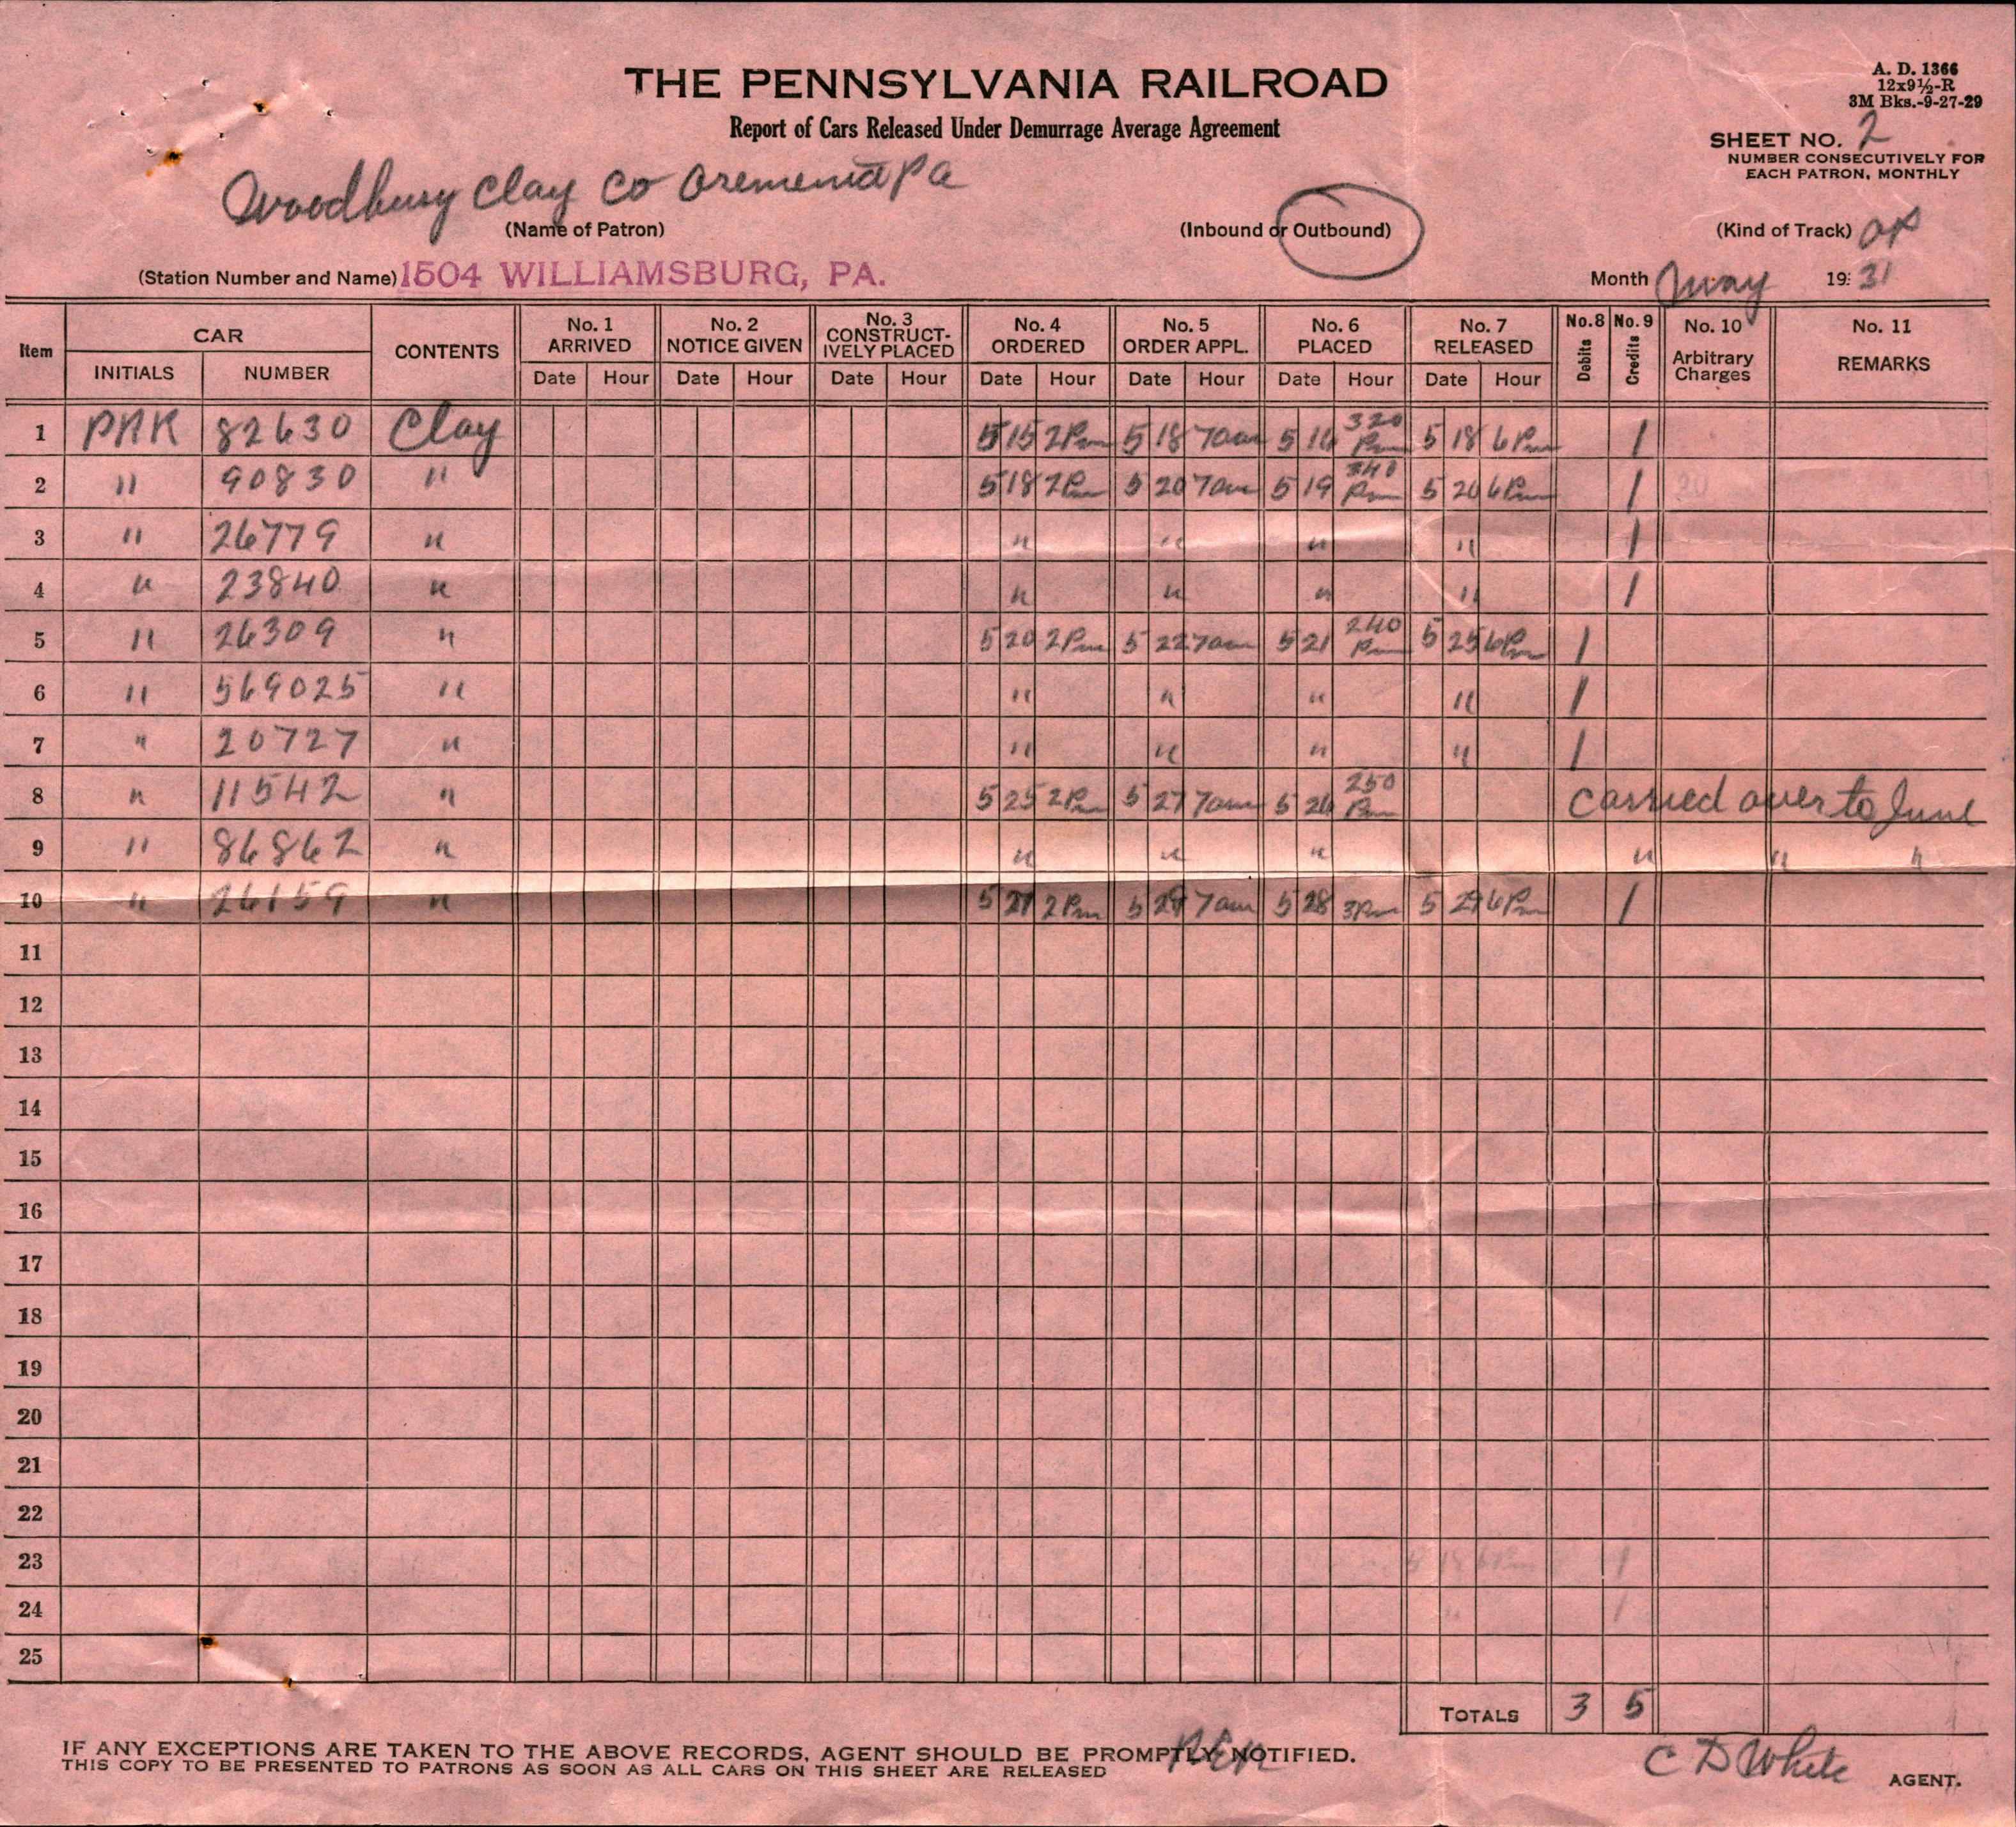 THE PENNSYLVANIA RAILROAD
Report of Cars Released Under Demurrage Average Agreement
A. D. 1366
12x9½-R
3M Bks.-9-27-29
SHEET NO. 2
NUMBER CONSECUTIVELY FOR
EACH PATRON, MONTHLY
Woodbury Clay Co Oremenia Pa
(Name of Patron) (Inbound or Outbound) (Kind of Track)
(Station Number and Name) 1504 WILLIAMSBURG, PA. Month May 19 31
Item CAR CONTENTS No. 1 ARRIVED No. 2 NOTICE GIVEN No. 3 CONSTRUCT-IVELY PLACED No. 4 ORDERED No. 5 ORDER APPL. No. 6 PLACED No. 7 RELEASED No.8 Debits No.9 Credits No. 10 Arbitrary Charges No. 11 REMARKS
INITIALS NUMBER Date Hour Date Hour Date Hour Date Hour Date Hour Date Hour Date Hour
1 PRR 82630 Clay 5 15 2Pm 5 18 7am 5 16 320 Pm 5 18 6Pm 1
2 " 90830 " 5 18 2Pm 5 20 7am 5 19 340 Pm 5 20 6Pm 1
3 " 26779 " " " " " 1
4 " 23840 " " " " " 1
5 " 26309 " 5 20 2Pm 5 22 7am 5 21 240 Pm 5 25 6Pm 1
6 " 569025 " " " " " 1
7 " 20727 " " " " " 1
8 " 11542 " 5 25 2Pm 5 27 7am 5 26 250 Pm Carried over to June
9 " 86862 " " " " " " "
10 " 26159 " 5 27 2Pm 5 29 7am 5 28 3Pm 5 29 6Pm 1
11
12
13
14
15
16
17
18
19
20
21
22
23
24
25
TOTALS 3 5
IF ANY EXCEPTIONS ARE TAKEN TO THE ABOVE RECORDS, AGENT SHOULD BE PROMPTLY NOTIFIED.
THIS COPY TO BE PRESENTED TO PATRONS AS SOON AS ALL CARS ON THIS SHEET ARE RELEASED
C D White AGENT.